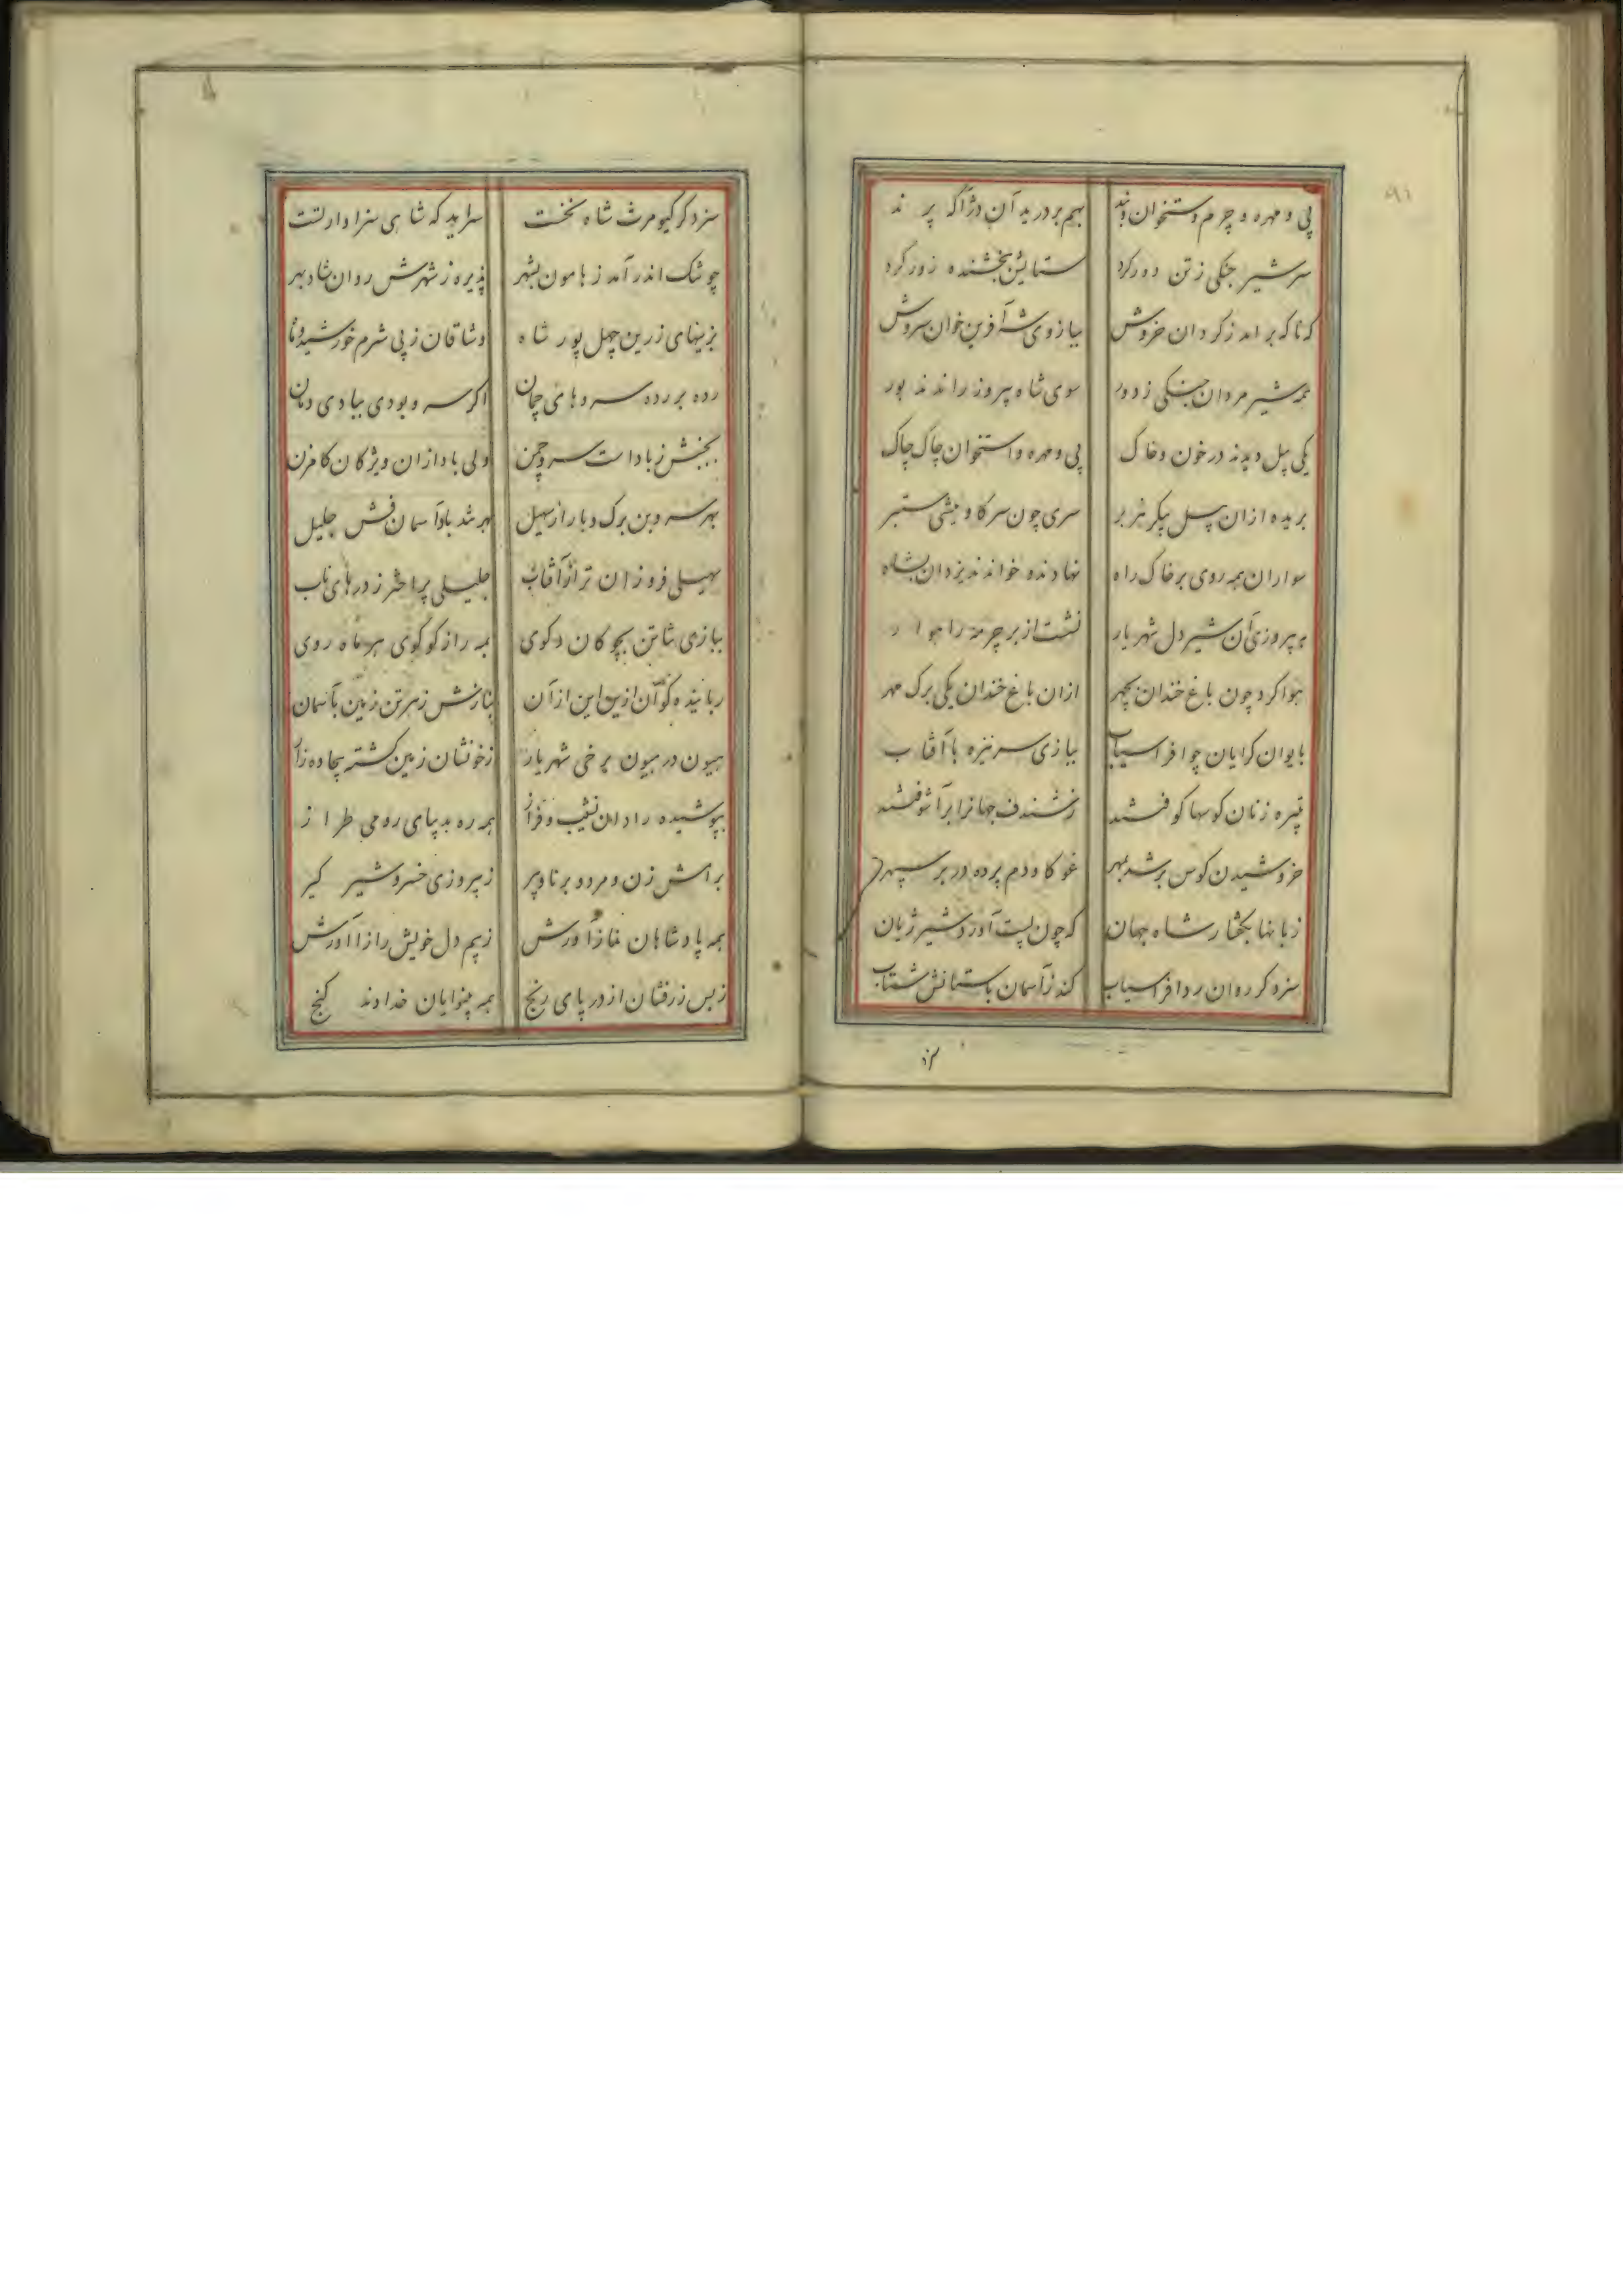 پی و مهره و چرم و ستخوان و بند بهم بر درید آن دژآکه پرند
سر شیر جنکی ز تن دور کرد ستایش ببخشنده زور کرد
که ناکه بر امد ز کردان خروش ببازوی شه آفرین خوان سروش
همه شیر مردان جنکی ز دور سوی شاه پیروز راندند بور
یکی پیل دیدند در خون و خاک پی و مهره و استخوان چاک چاک
بریده ازان پیل پیکر هژبر سری چون سر کاو میشی ستبر
سواران همه روی بر خاک راه نهادند و خواندند یزدان بشاه
به پیروزی آن شیر دل شهریار نشست از بر چرمه راهوار
هوا کرد چون باغ خندان بچهر ازان باغ خندان یکی برک مهر
بایوان کرایان چو افراسیاب ببازی سر نیزه با آفتاب
تبیره زنان کوسها کوفتند ز شندف جهانرا بر آشوفتند
خروشیدن کوس بر شد بمهر غو کاو دم پرده در بر سپهر
زبانها بکفتار شاه جهان که چون پست آورد شیر ژیان
سزد کر روان رد افراسیاب کند ز آسمان با ستانش شتاب
سزد کر کیومرث شاه نخست سراید که شاهی سزاوار تست
چو شک اندر آمد ز هامون بشهر پذیره ز شهرش روان شاد بهر
بزینهای زرین چهل پور شاه وشاقان ز پی شرم خورشید و ماه
رده بر رده سروهای چمان اکر سرو بودی ببادی دمان
بجنبش ز باد است سرو چمن ولی باد ازان ویژکان کامزن
بهر سرو بن برک و بار از سهیل
سهیلی فروزان تر از آفتاب جلیلی پر اختر ز درهای ناب
ببازی شاتن بچوکان و کوی همه راز کو کوی هر ماه روی
رباینده کو آن ازین این از آن بنازش ز هر تن زمین باسمان
هیون در هیون برخی شهریار ز خونشان زمین کشته بیجاده زار
بپوشیده رادان نشیب و فراز همه ره بدیبای رومی طراز
برامش زن و مرد و برنا و پیر ز پیروزی خسرو شیر کیر
همه پادشاهان
ز بس زر فشان از در پای رنج همه بینوایان خداوند کنج